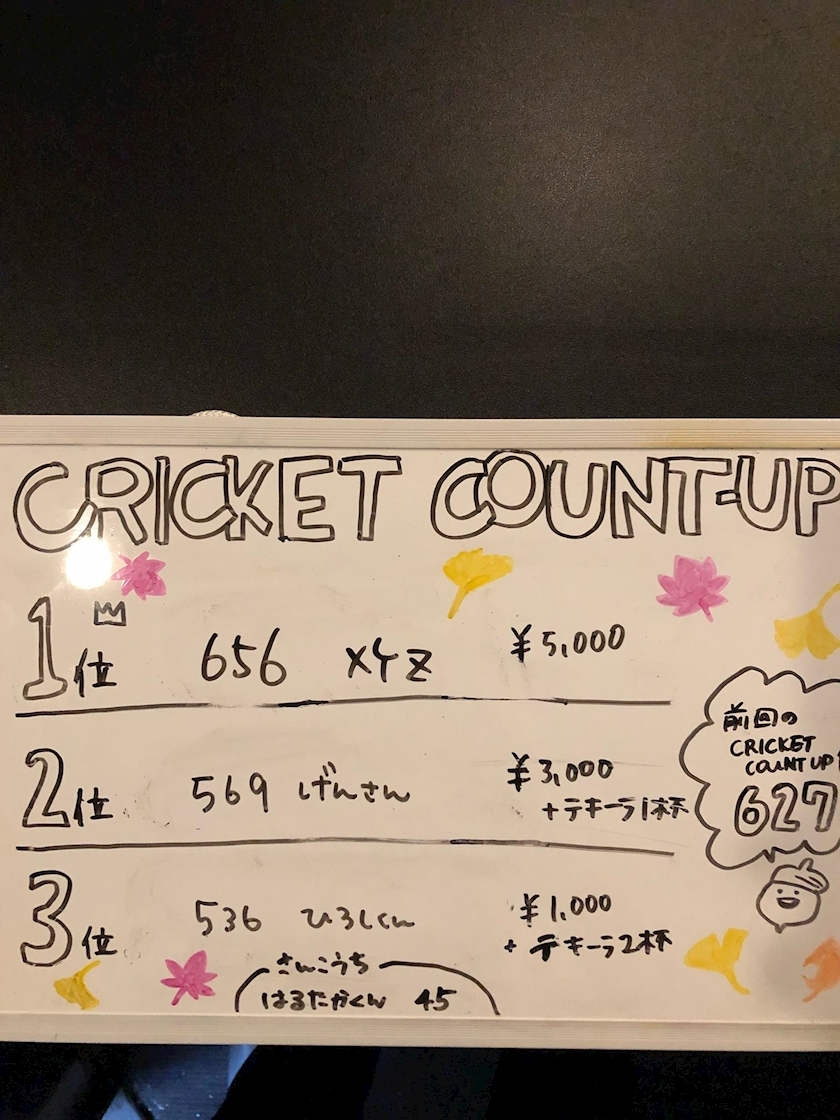 CRICKET COUNT-UP
1位 656 XYZ ¥5,000
2位 569 げんさん ¥3,000
+テキーラ1杯
3位 536 ひろしくん ¥1,000
+テキーラ2杯
さんこうち
はるたかくん 45
前回の
CRICKET
COUNT UP
627